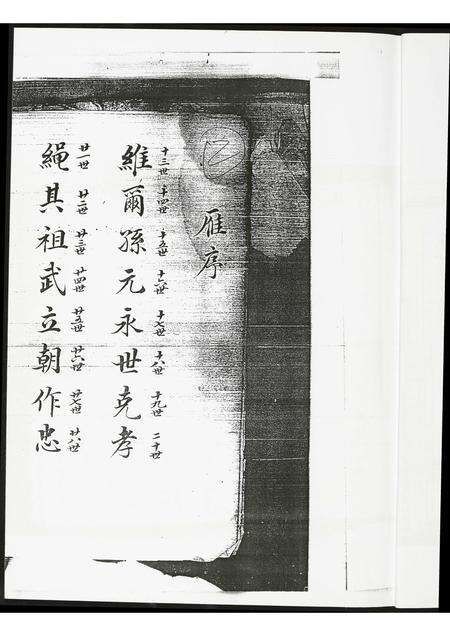 雁序
十三世 十四世 十五世 十六世 十七世 十八世 十九世 二十世
維爾孫元永世克孝
廿一世 廿二世 廿三世 廿四世 廿五世 廿六世 廿七世 廿八世
繩其祖武立朝作忠